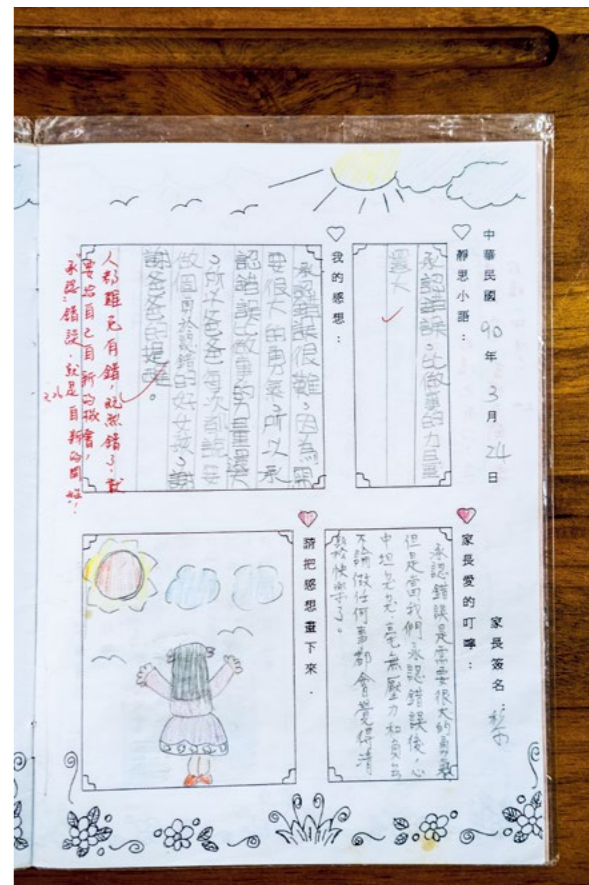 中華民國 90 年 3 月 24 日
靜思小語：
承認錯誤，比做事的力量
還大
我的感想：
承認錯誤很難，因為需
要很大的勇氣，所以承
認錯誤比做事的力量還大
，所以爸爸每次都說要
做個勇於認錯的好女孩，謝
謝爸爸的提醒。
人都難免有錯，既然錯了，就
要給自己自新的機會，
承認錯誤，就是自新的開始！
家長簽名：
家長愛的叮嚀：
承認錯誤是需要很大的勇氣
但是當我們承認錯誤後，心
中坦然毫無壓力和負荷
不論做任何事都會覺得清
鬆快樂了。
請把感想畫下來．